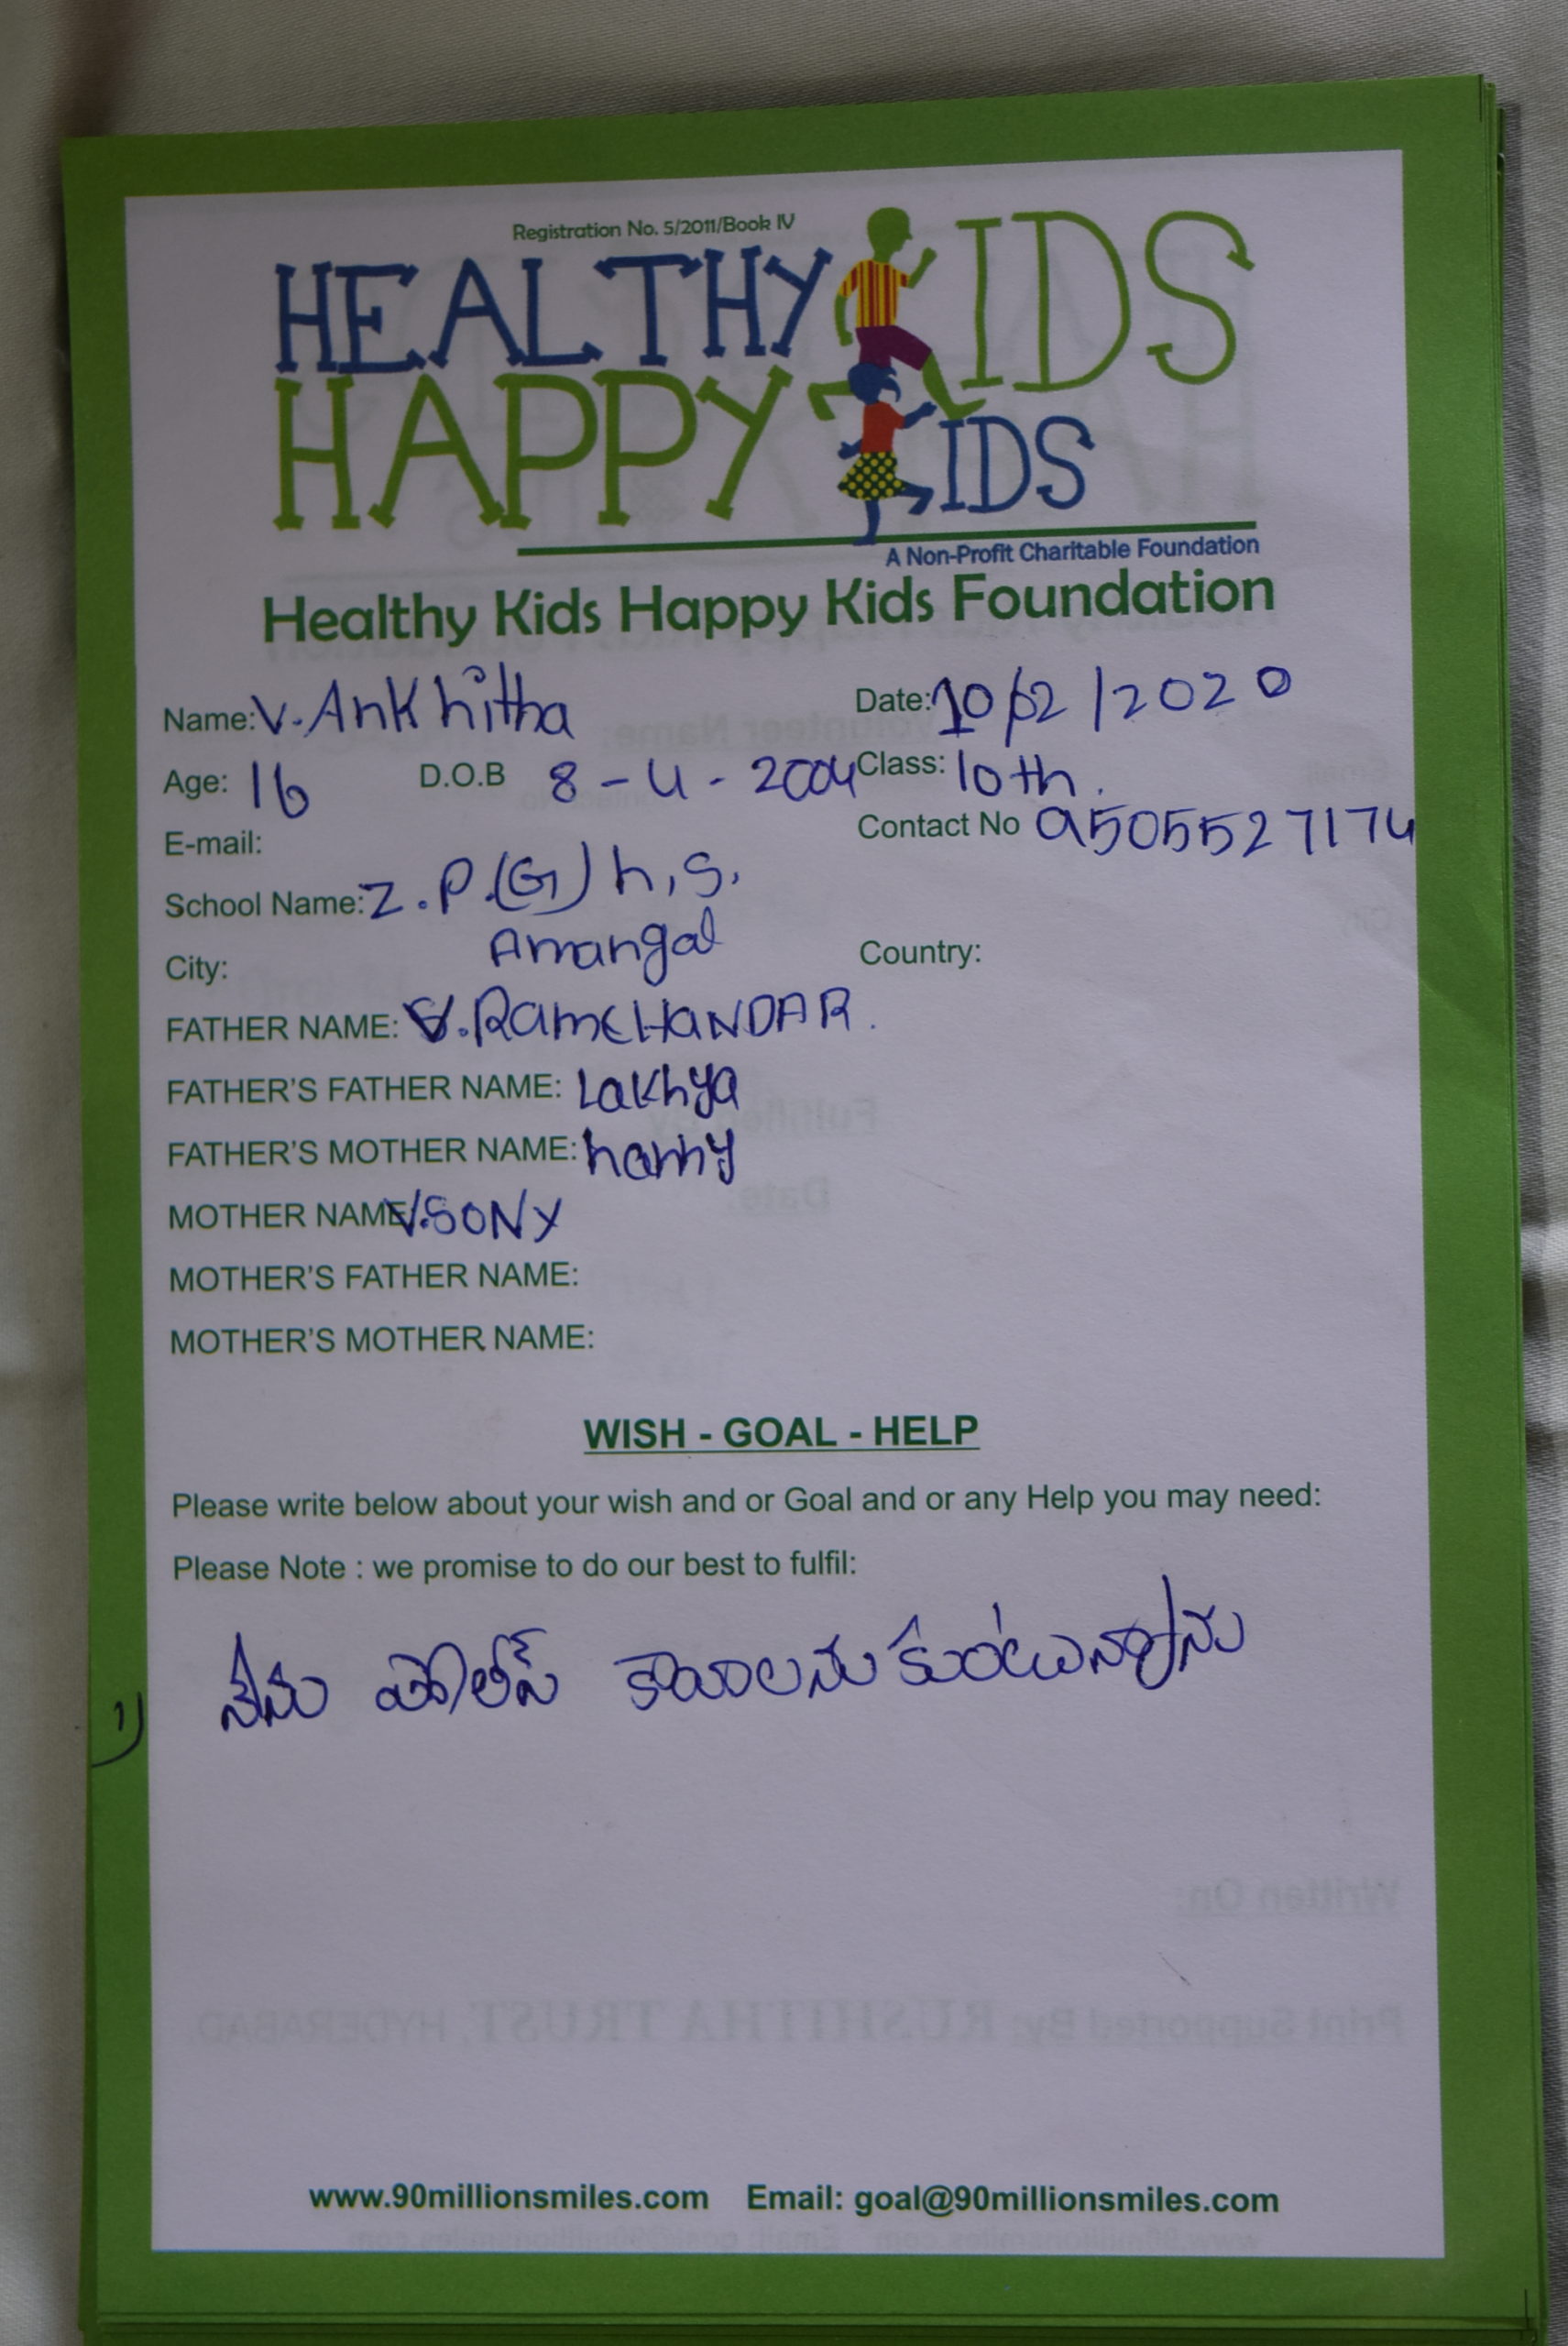 Registration No. 5/2011/Book IV
HEALTHY KIDS
HAPPY KIDS
A Non-Profit Charitable Foundation
Healthy Kids Happy Kids Foundation
Name: V. Ankhitha Date: 10/02/2020
Age: 16 D.O.B 8-4-2004 Class: 10th.
E-mail: Contact No 9505527174
School Name: Z.P.(G) h.S.
City: Amangal Country:
FATHER NAME: V. RAMCHANDAR.
FATHER'S FATHER NAME: Lakhya
FATHER'S MOTHER NAME:
MOTHER NAME: V.SONY
MOTHER'S FATHER NAME:
MOTHER'S MOTHER NAME:
WISH - GOAL - HELP
Please write below about your wish and or Goal and or any Help you may need:
Please Note : we promise to do our best to fulfil:
1) నేను పోలీస్ కావాలనుకుంటున్నాను
www.90millionsmiles.com Email: goal@90millionsmiles.com